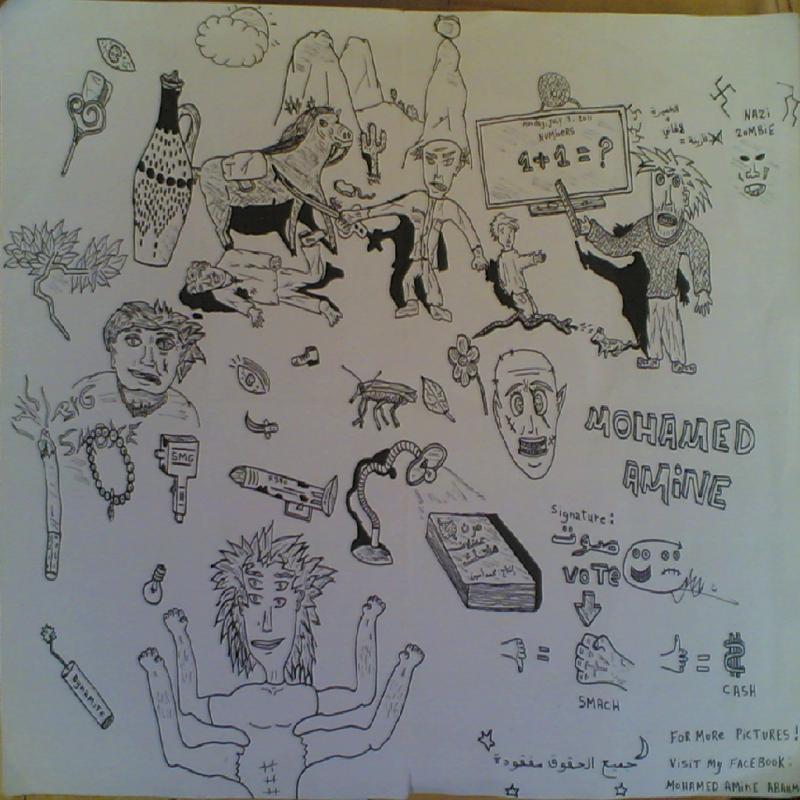 monday, july 3. 2011
NUMBERS
1+1=?
NAZI
ZOMBIE
BIG
SMG
MOHAMED
AMINE
Signature:
صوت
VOTE
=
SMACH
=
CASH
Dynamite
جميع الحقوق مفقودة
FOR MORE PICTURES!
VISIT MY FACEBOOK:
MOHAMED AMINE